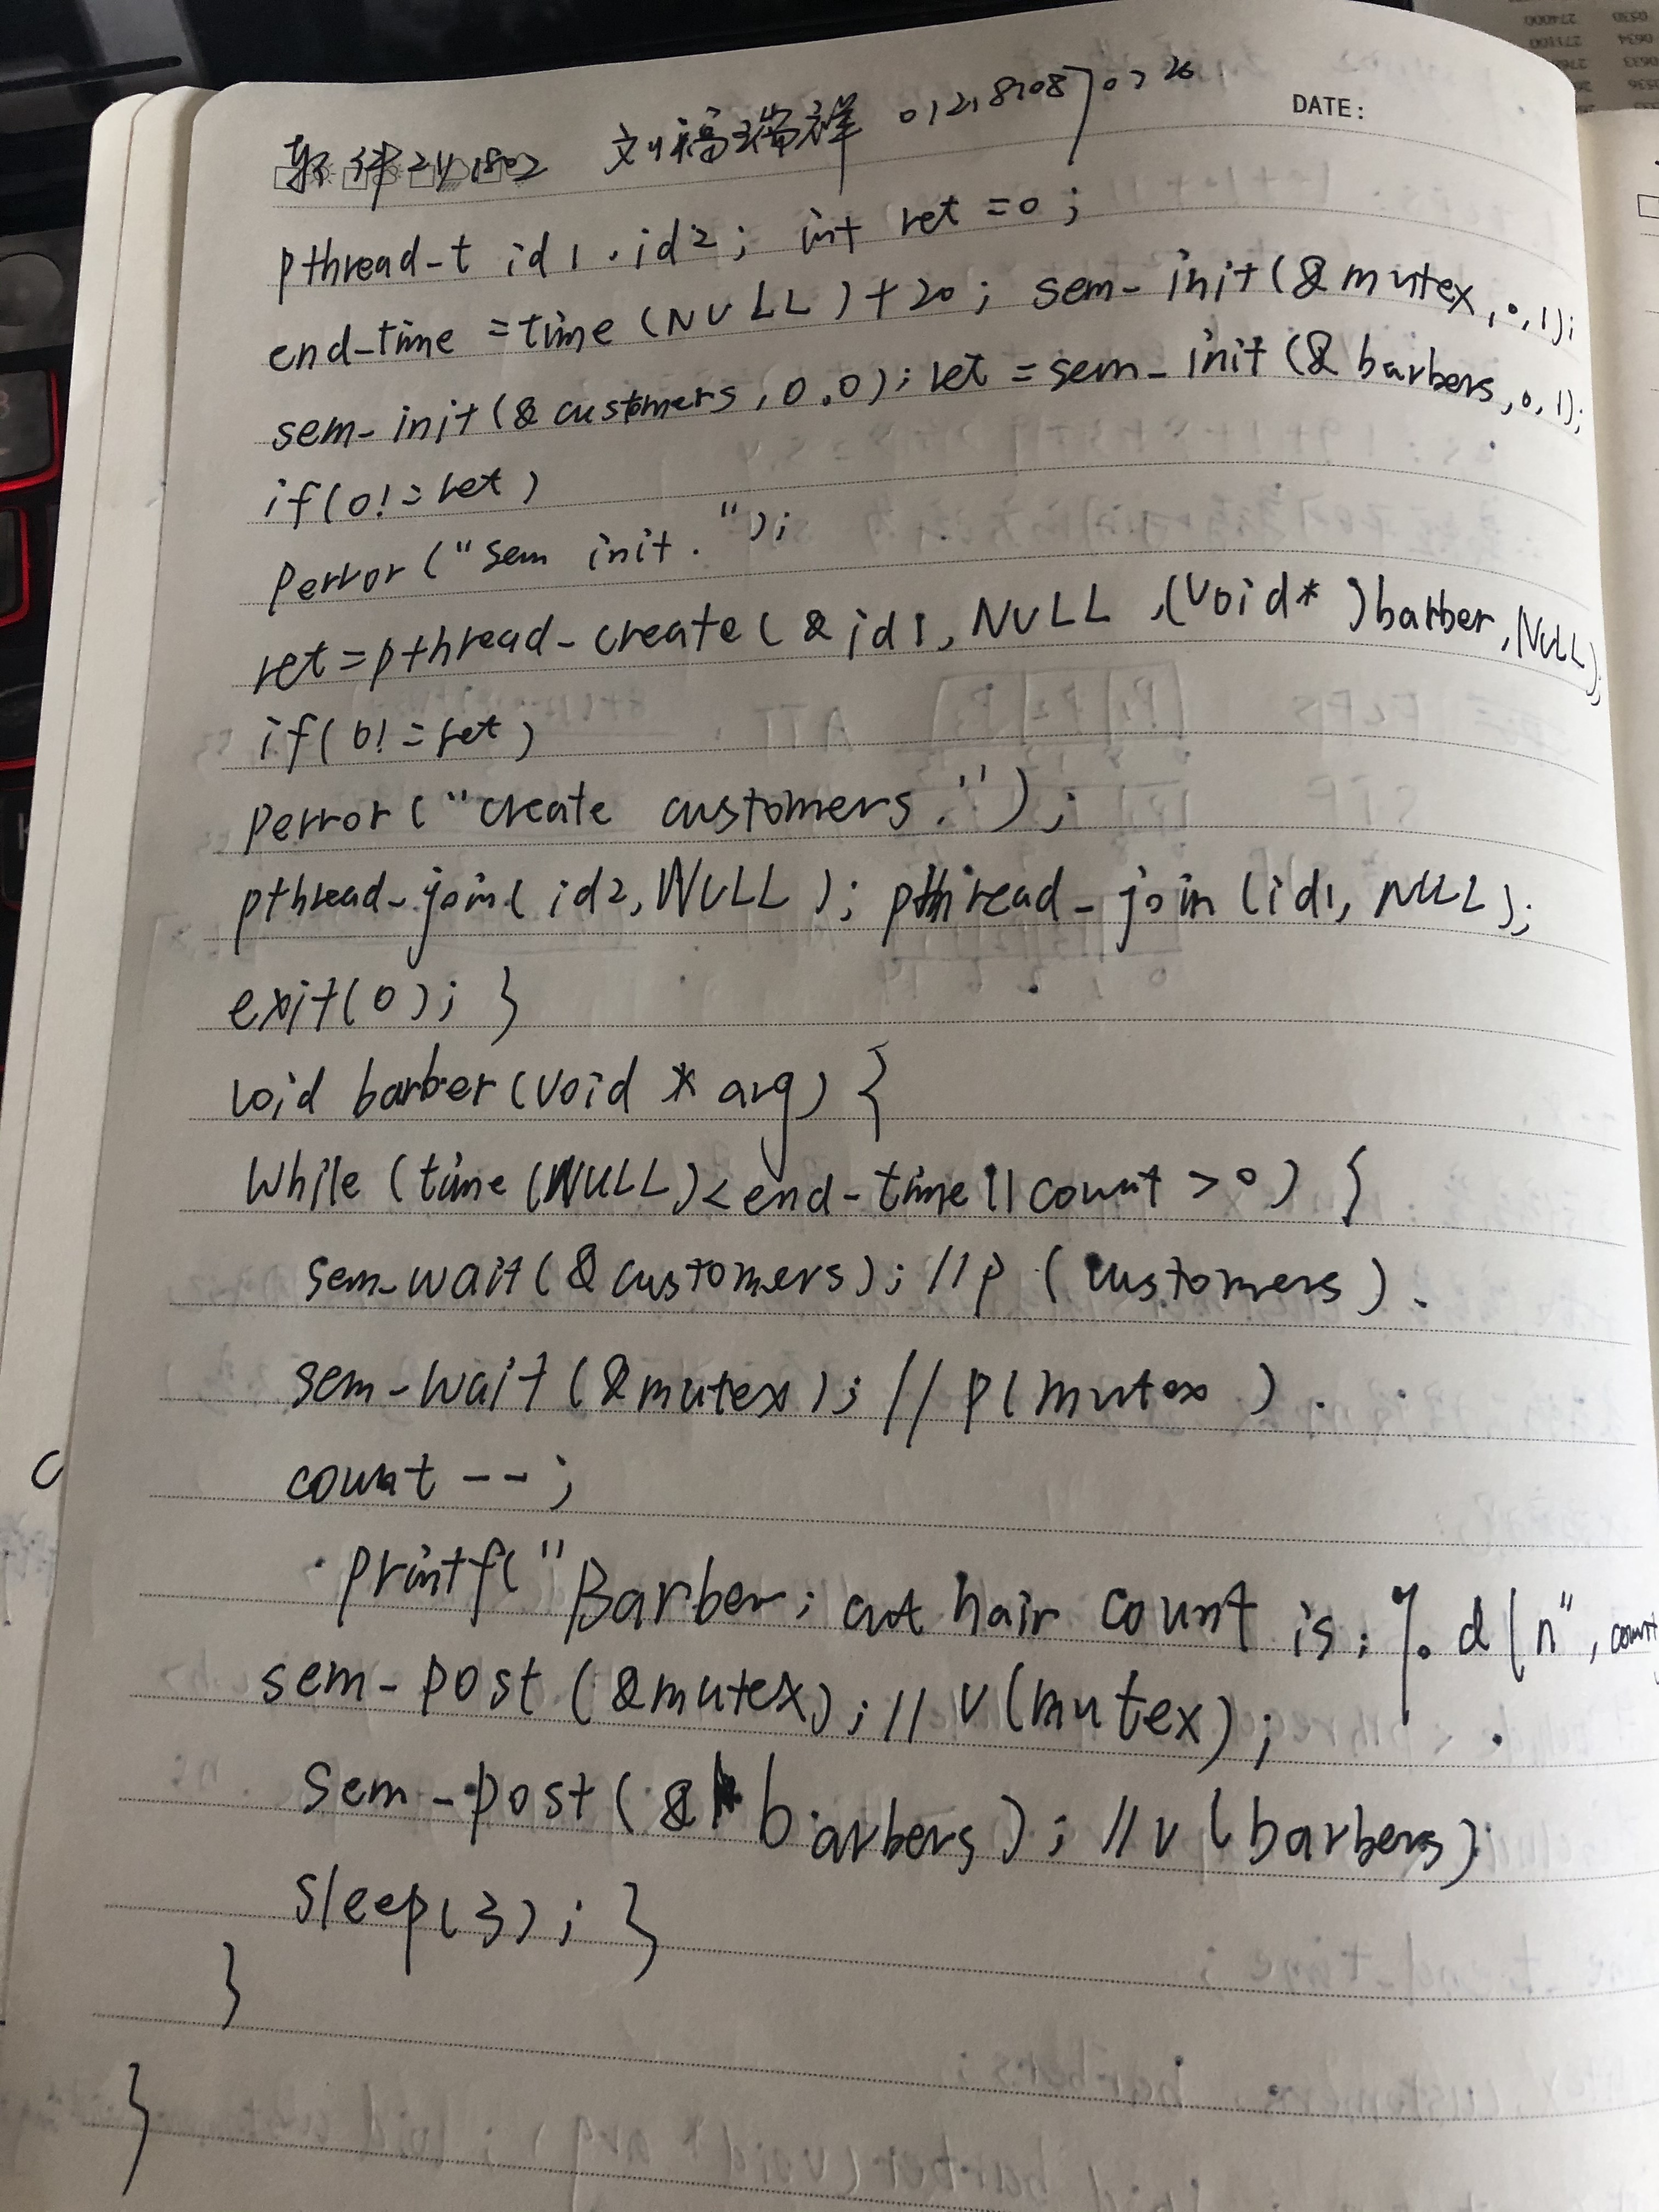 DATE:
软件zy1802 刘福瑞祥 0121810870726
pthread-t id1. id2; int ret =0;
end-time =time (NULL)+20; sem- init(& mutex,0,1);
sem- init(& customers, 0.0); ret =sem- init (& barbers,0,1);
if(0!=ret)
perror("sem init.");
ret=pthread-create(&id1, NULL ,(void*)barber,NULL);
if(0!=ret)
perror("create customers.");
pthread-join(id2,NULL); pthread-join(id1, NULL);
exit(0); }
void barber(void * arg) {
while (time(NULL)<end-time||count >0) {
sem-wait(&customers); //p (customers).
sem-wait(&mutex); //p(mutex).
count --;
printf("Barber; cut hair count is: %d\n", count
sem-post (&mutex);//v(mutex);
sem-post(& barbers); //v(barbers);
sleep(3); }
}
}